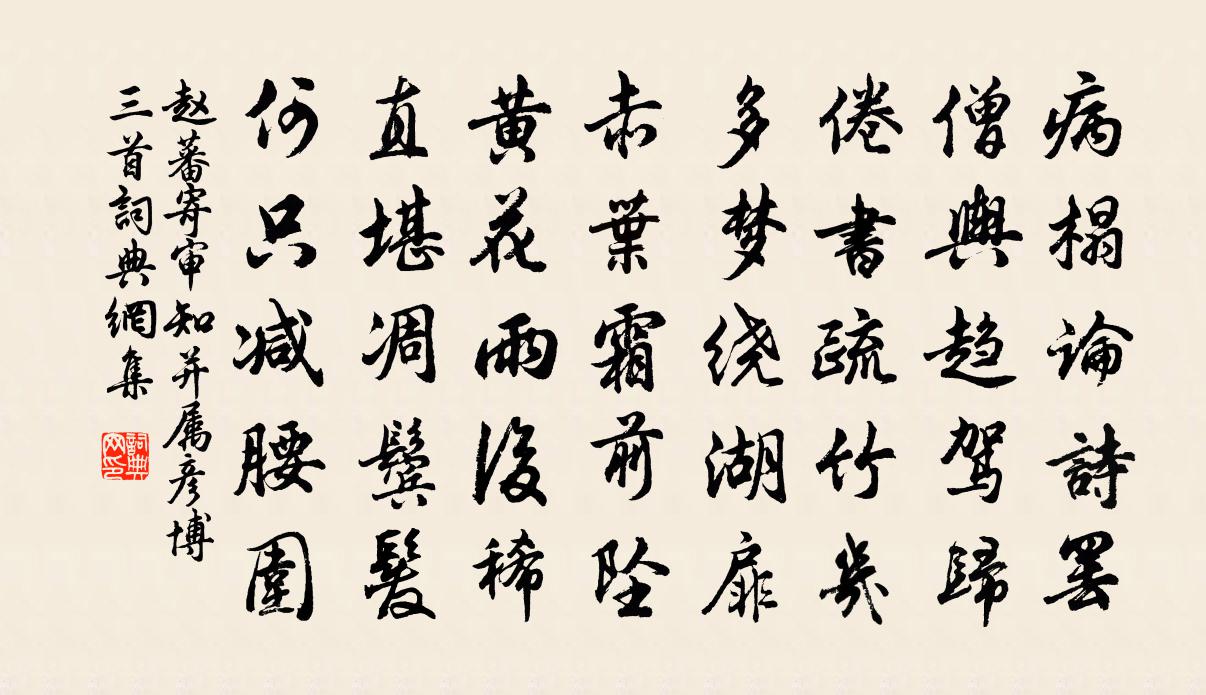 病榻論詩罢
僧輿趋驾歸
倦書疏竹幾
多梦绕湖扉
赤葉霜前坠
黄花雨後稀
直堪凋鬓髮
何只减腰圍
赵蕃寄审知并属彦博
三首詞典網集
詞典
网印